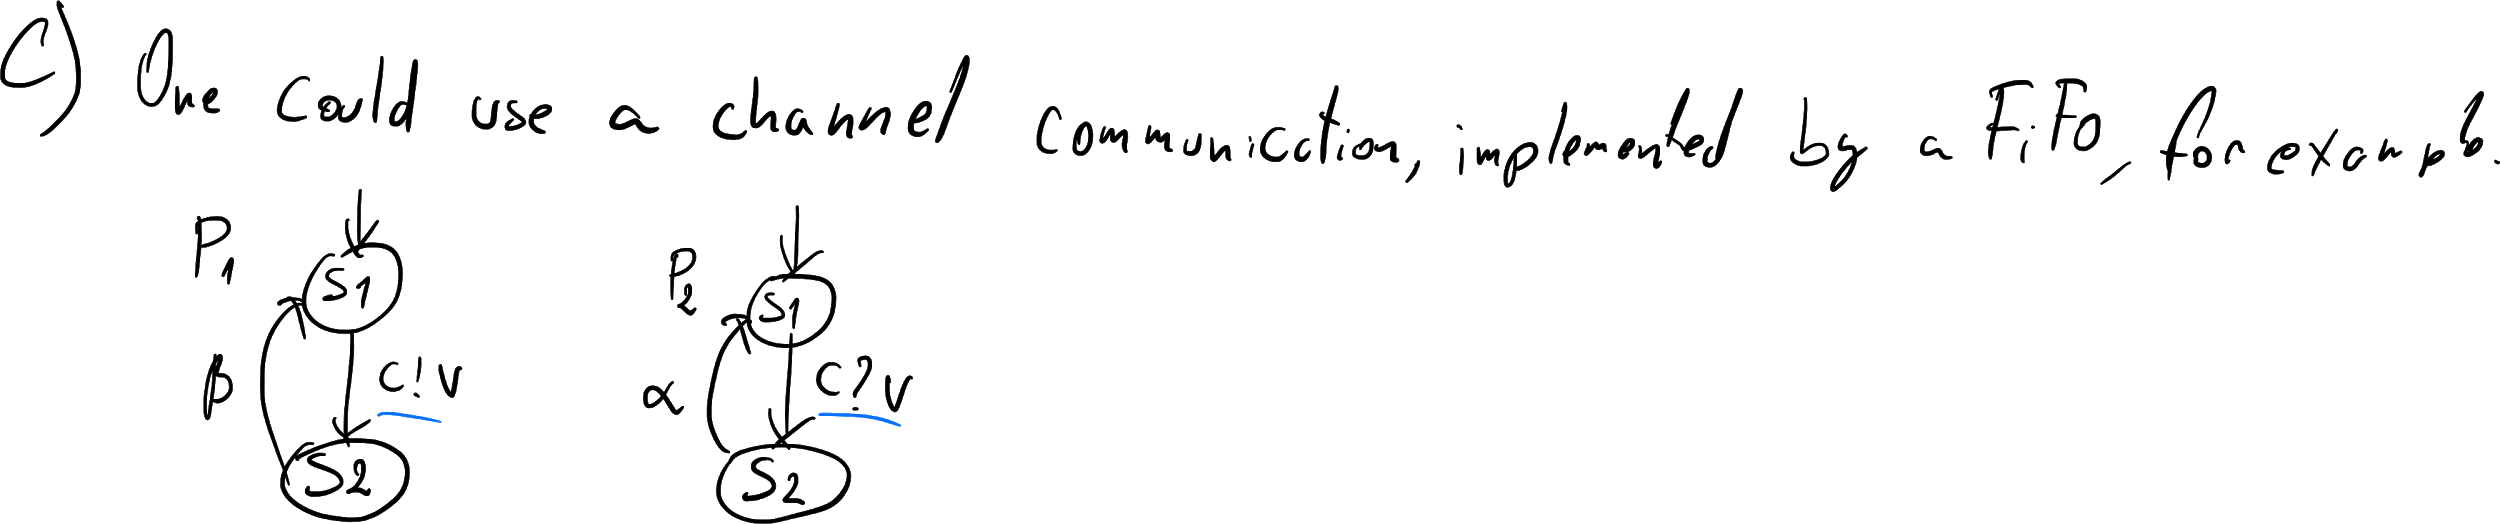 C) One could use a channel communication, implemented by a FiFo, for example.
P1
S1
β
C!v
S2
P2
S1
α
C?v
S2